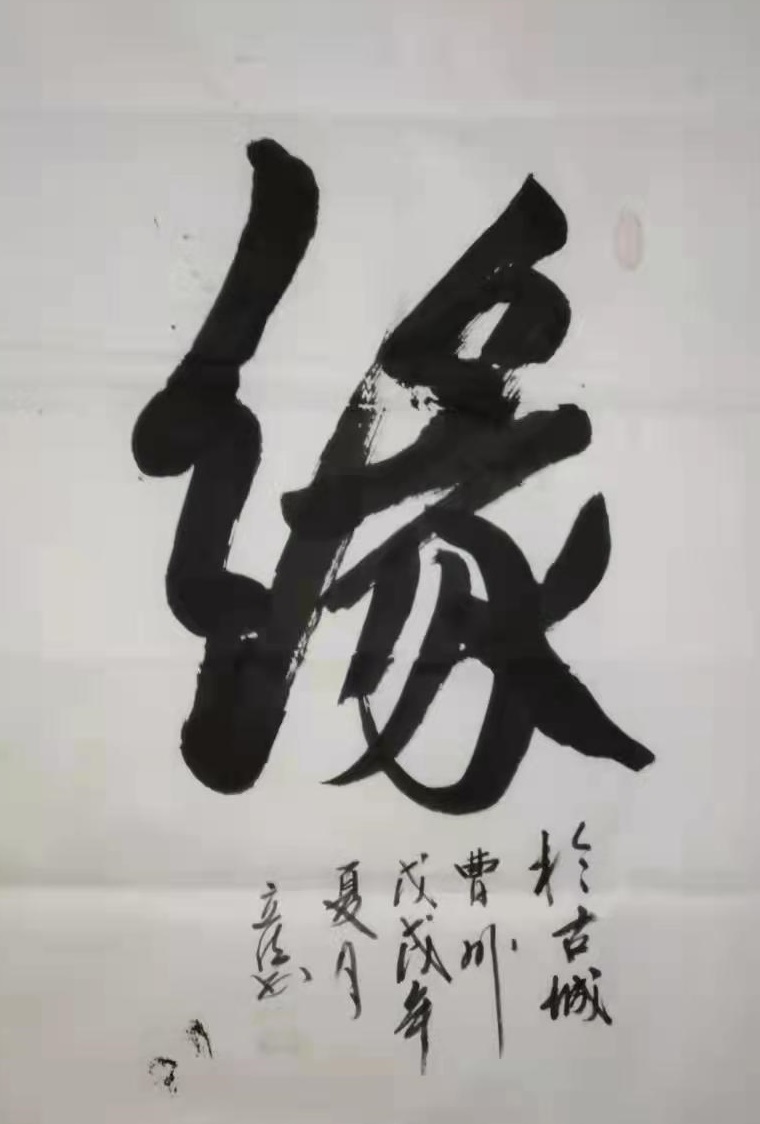 缘
於古城
曹州
戊戌年
夏月
立